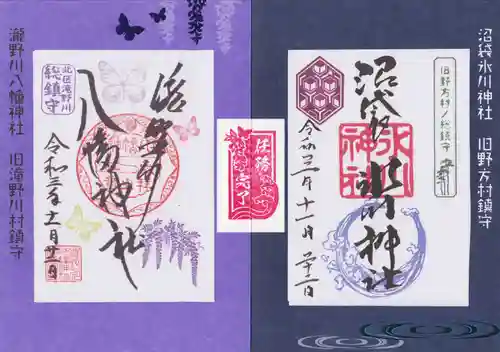 沼袋氷川神社 旧野方村鎮守
旧野方村ノ総鎮守
沼袋
氷川神社
令和三年十一月廿一日
任務
完了
滝野川
八幡神社
北区滝野川
総鎮守
令和三年十一月廿一日
瀧野川八幡神社 旧滝野川村鎮守